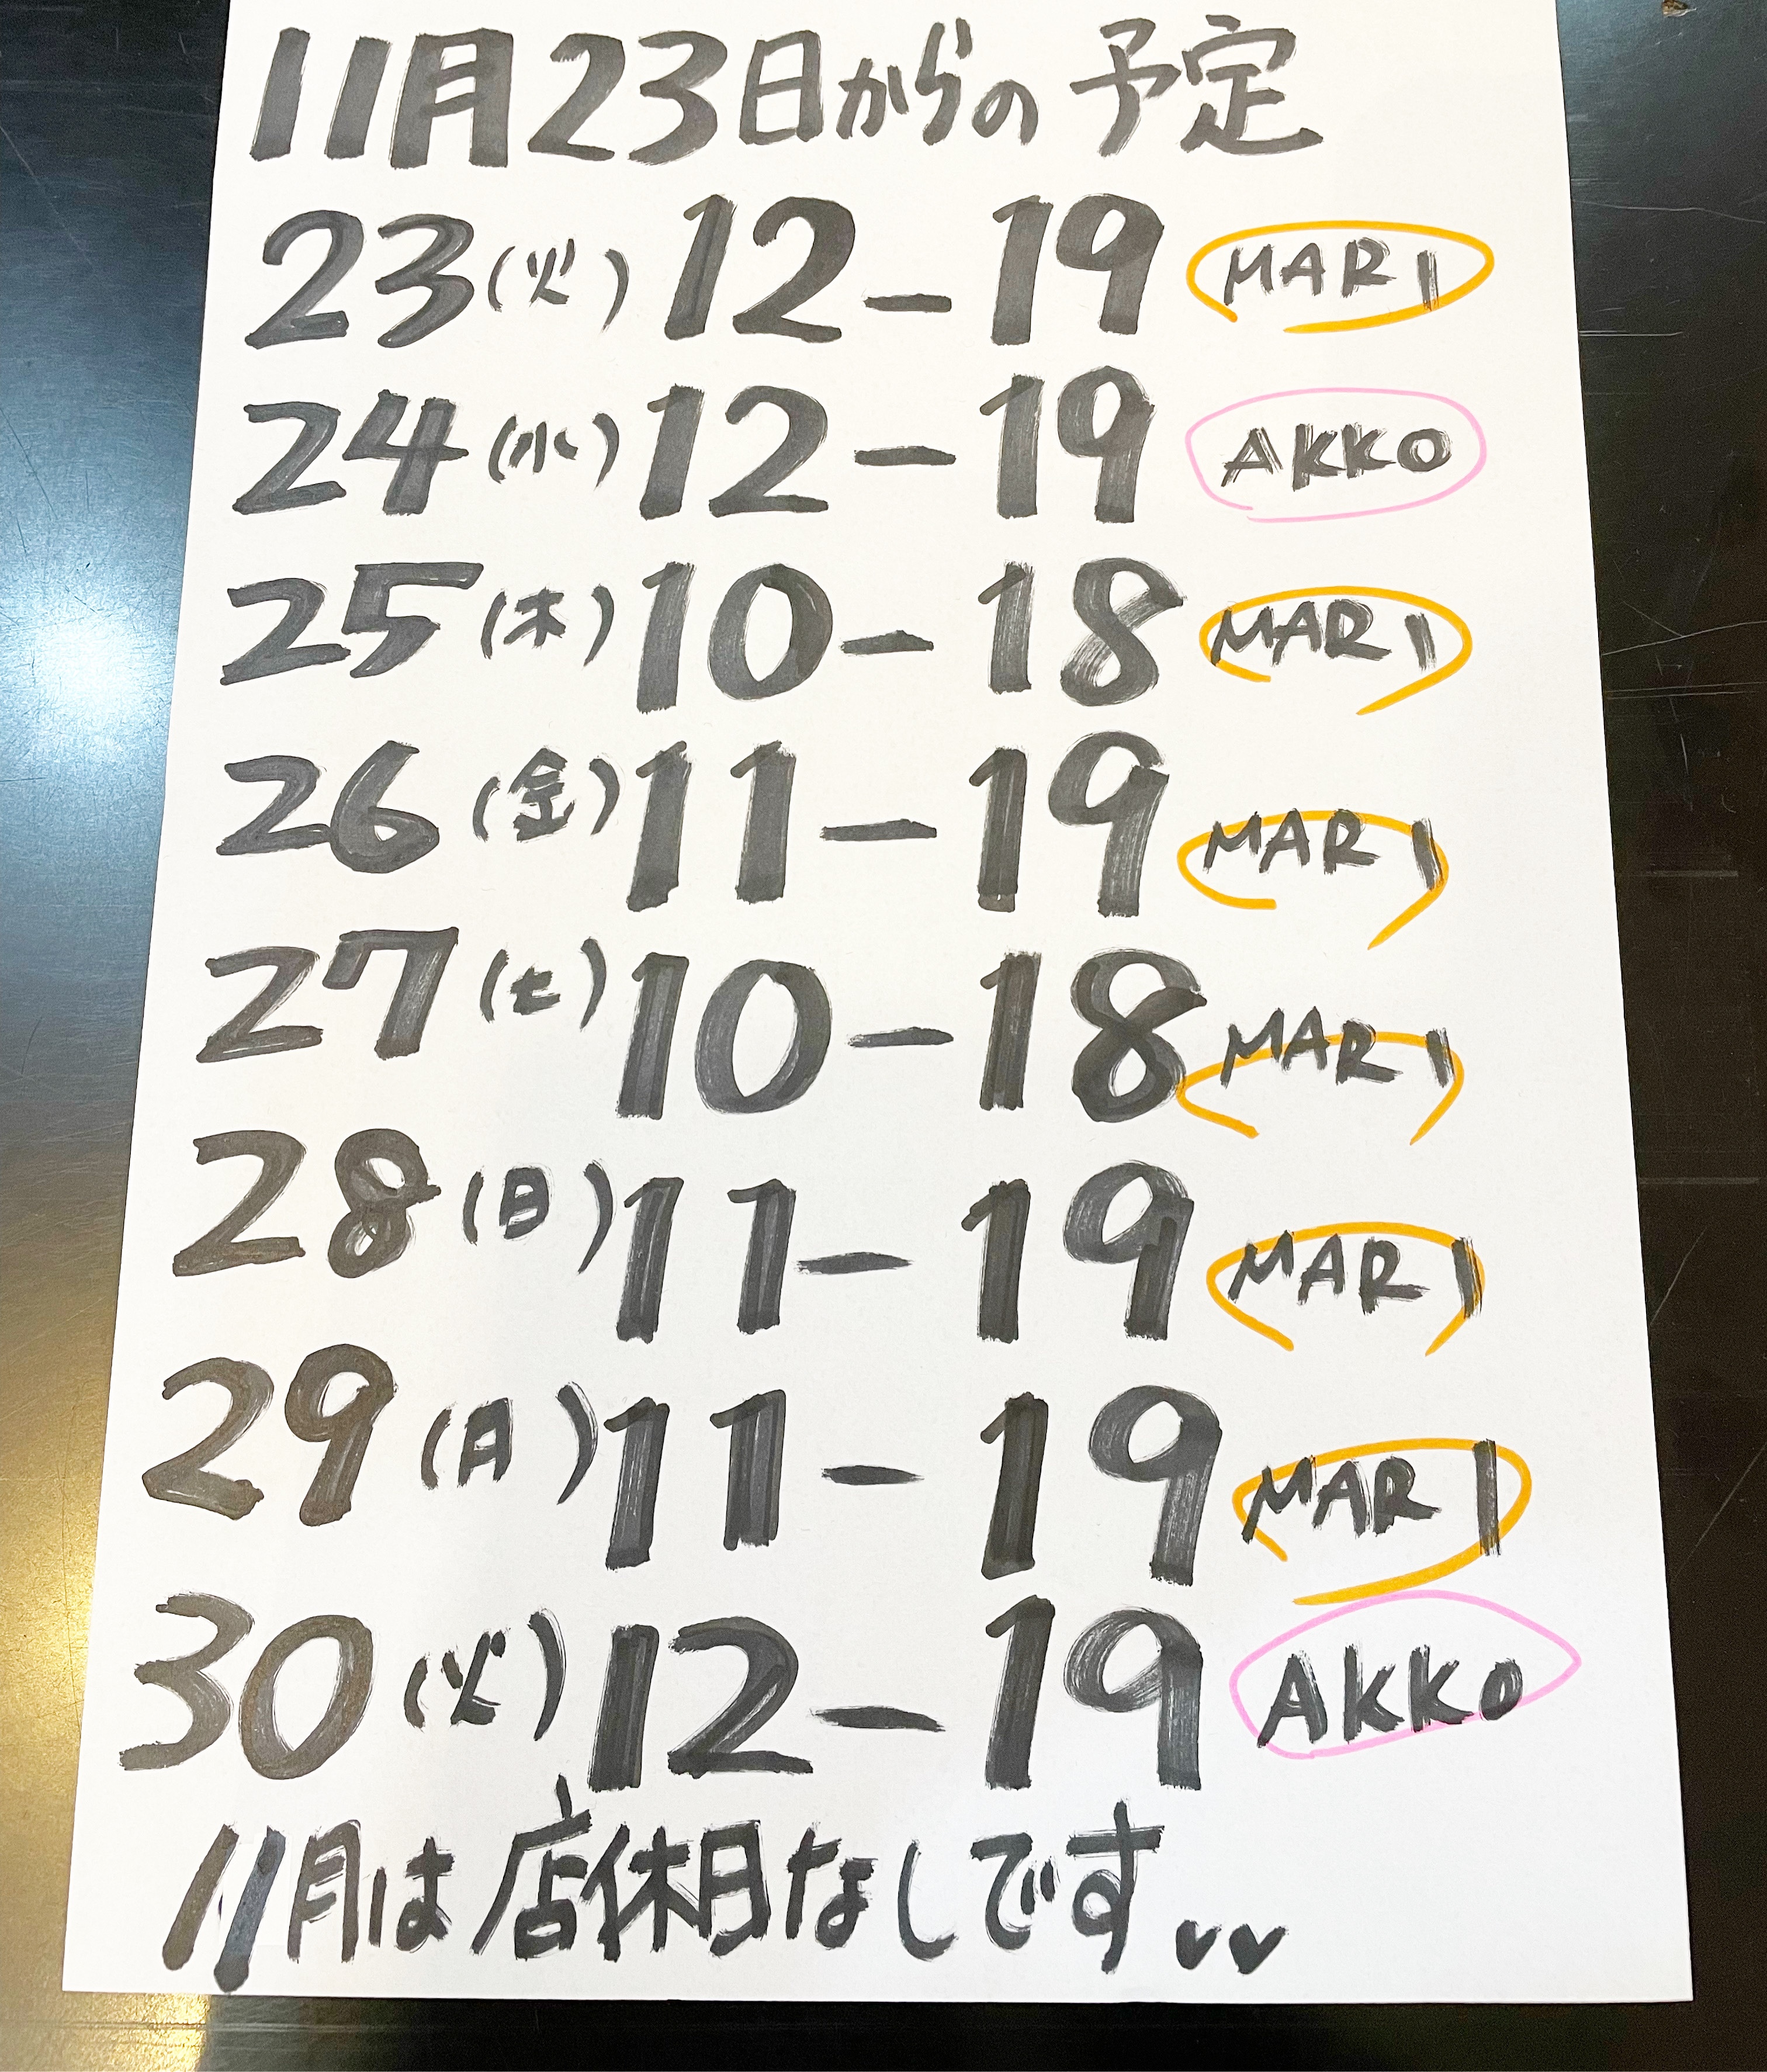 11月23日からの予定
23(火) 12-19 MARI
24(水) 12-19 AKKO
25(木) 10-18 MARI
26(金) 11-19 MARI
27(土) 10-18 MARI
28(日) 11-19 MARI
29(月) 11-19 MARI
30(火) 12-19 AKKO
11月は店休日なしです♥♥